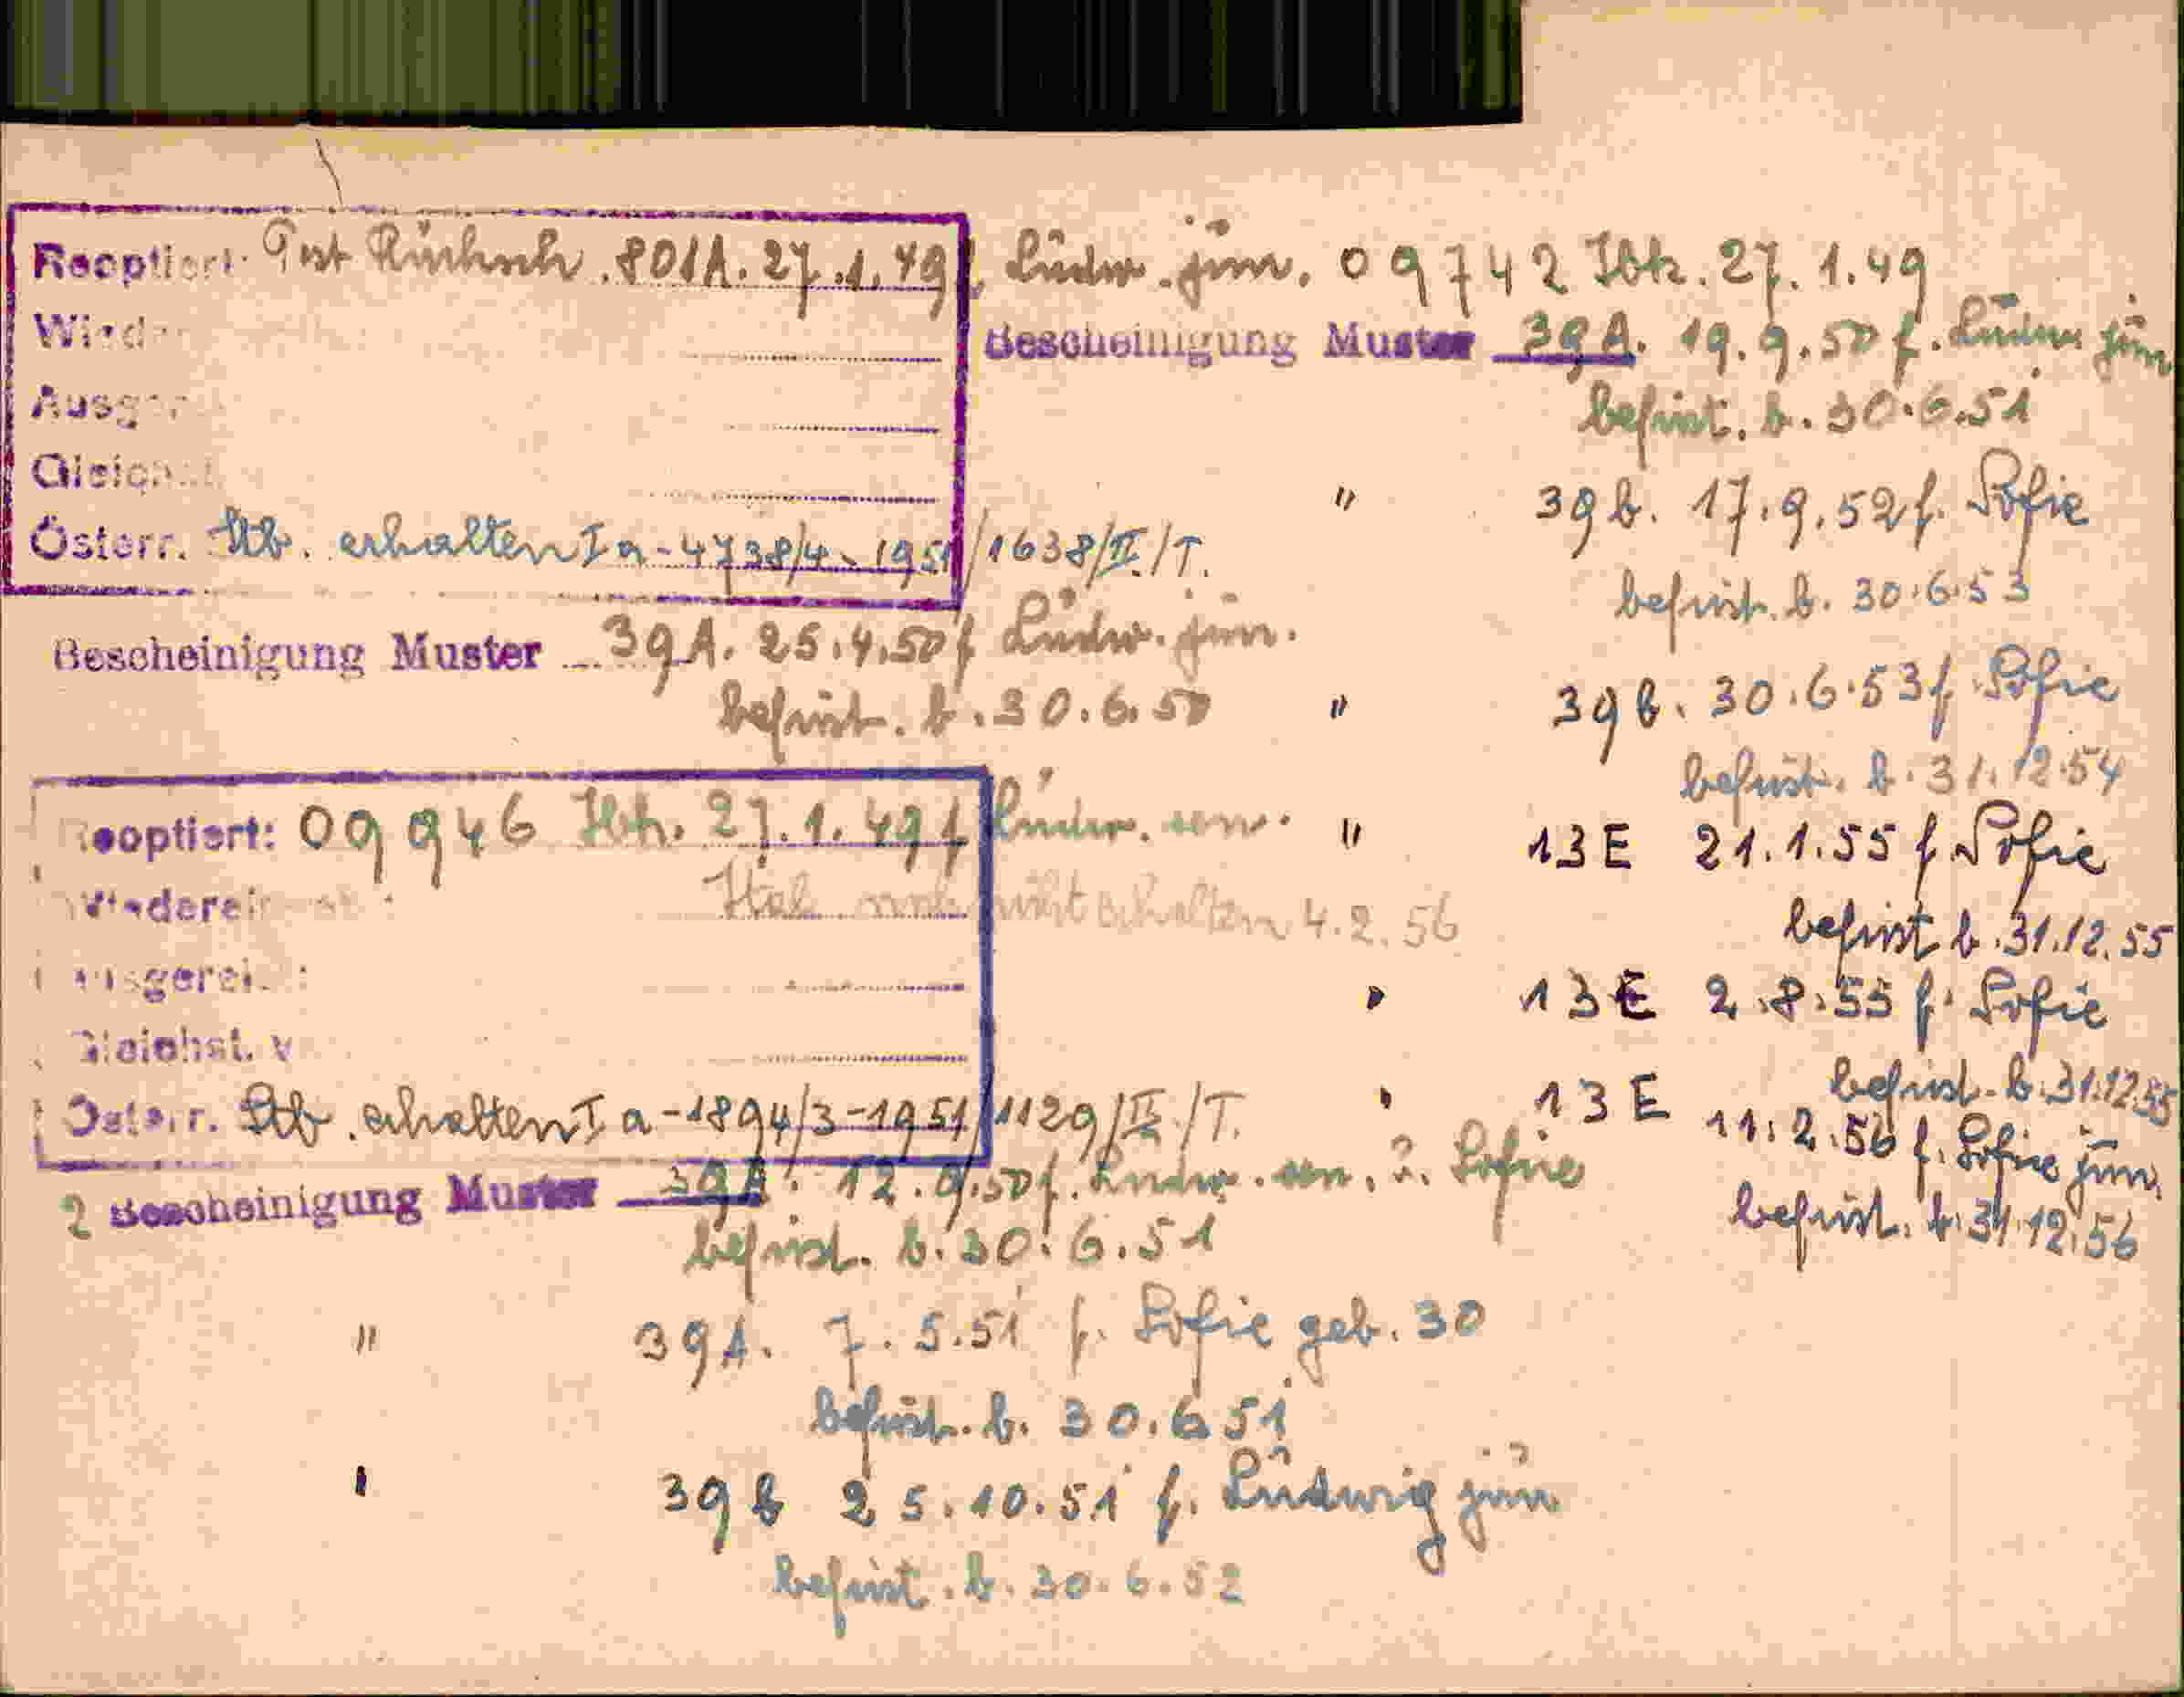 Reoptiert: 801A. 27.1.49 f. Ludw. jun. 09742 Ibk. 27.1.49
Bescheinigung Muster 39A. 19.9.50 f. Ludw. jun.
befrist. b. 30.6.51
" 39b. 17.9.52 f. Sofie
Österr. Stb. erhalten I a - 4738/4 - 1951/1638/II/T.
befrist. b. 30.6.53
Bescheinigung Muster 39A. 25.4.50 f Ludw. jun.
befrist. b. 30.6.50
" 39b. 30.6.53 f. Sofie
befrist. b. 31.12.54
Reoptiert: 09946 Ibk. 27.1.49 f Ludw. sen.
" 13E 21.1.55 f. Sofie
Wiederein
Ital. noch nicht erhalten 4.2.56
befrist b. 31.12.55
" 13E 2.8.55 f. Sofie
befrist. b. 31.12.55
Gleichst. v
Österr. Stb. erhalten I a - 1894/3 - 1951/1129/II/T.
" 13E 11.2.56 f. Sofie jun.
befrist. b. 31.12.56
2 Bescheinigung Muster 39A. 12.9.50 f. Ludw. sen. u. Sofie
befrist. b. 30.6.51
" 39A. 7.5.51 f. Sofie geb. 30
befrist. b. 30.6.51
" 39b 25.10.51 f. Ludwig jun
befrist. b. 30.6.52